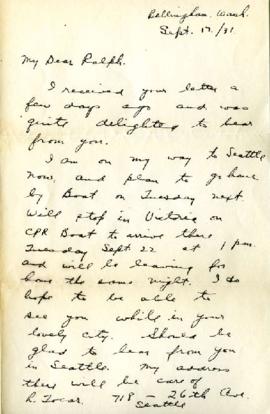 Bellingham, Wash.
Sept. 17/31.
My Dear Ralph.
I received your letter a
few days ago and was
quite delighted to hear
from you.
I am on my way to Seattle
now, and plan to go home
by Boat on Tuesday next.
Will stop in Victoria on
CPR Boat to arrive there
Tuesday Sept. 22 at 1 p.m.
and will be leaving for
home the same night. I do
hope to be able to
see you while in your
lovely city. Should be
glad to hear from you
in Seattle. My address
there will be care of
R. 718 - 26th Ave.
Seattle